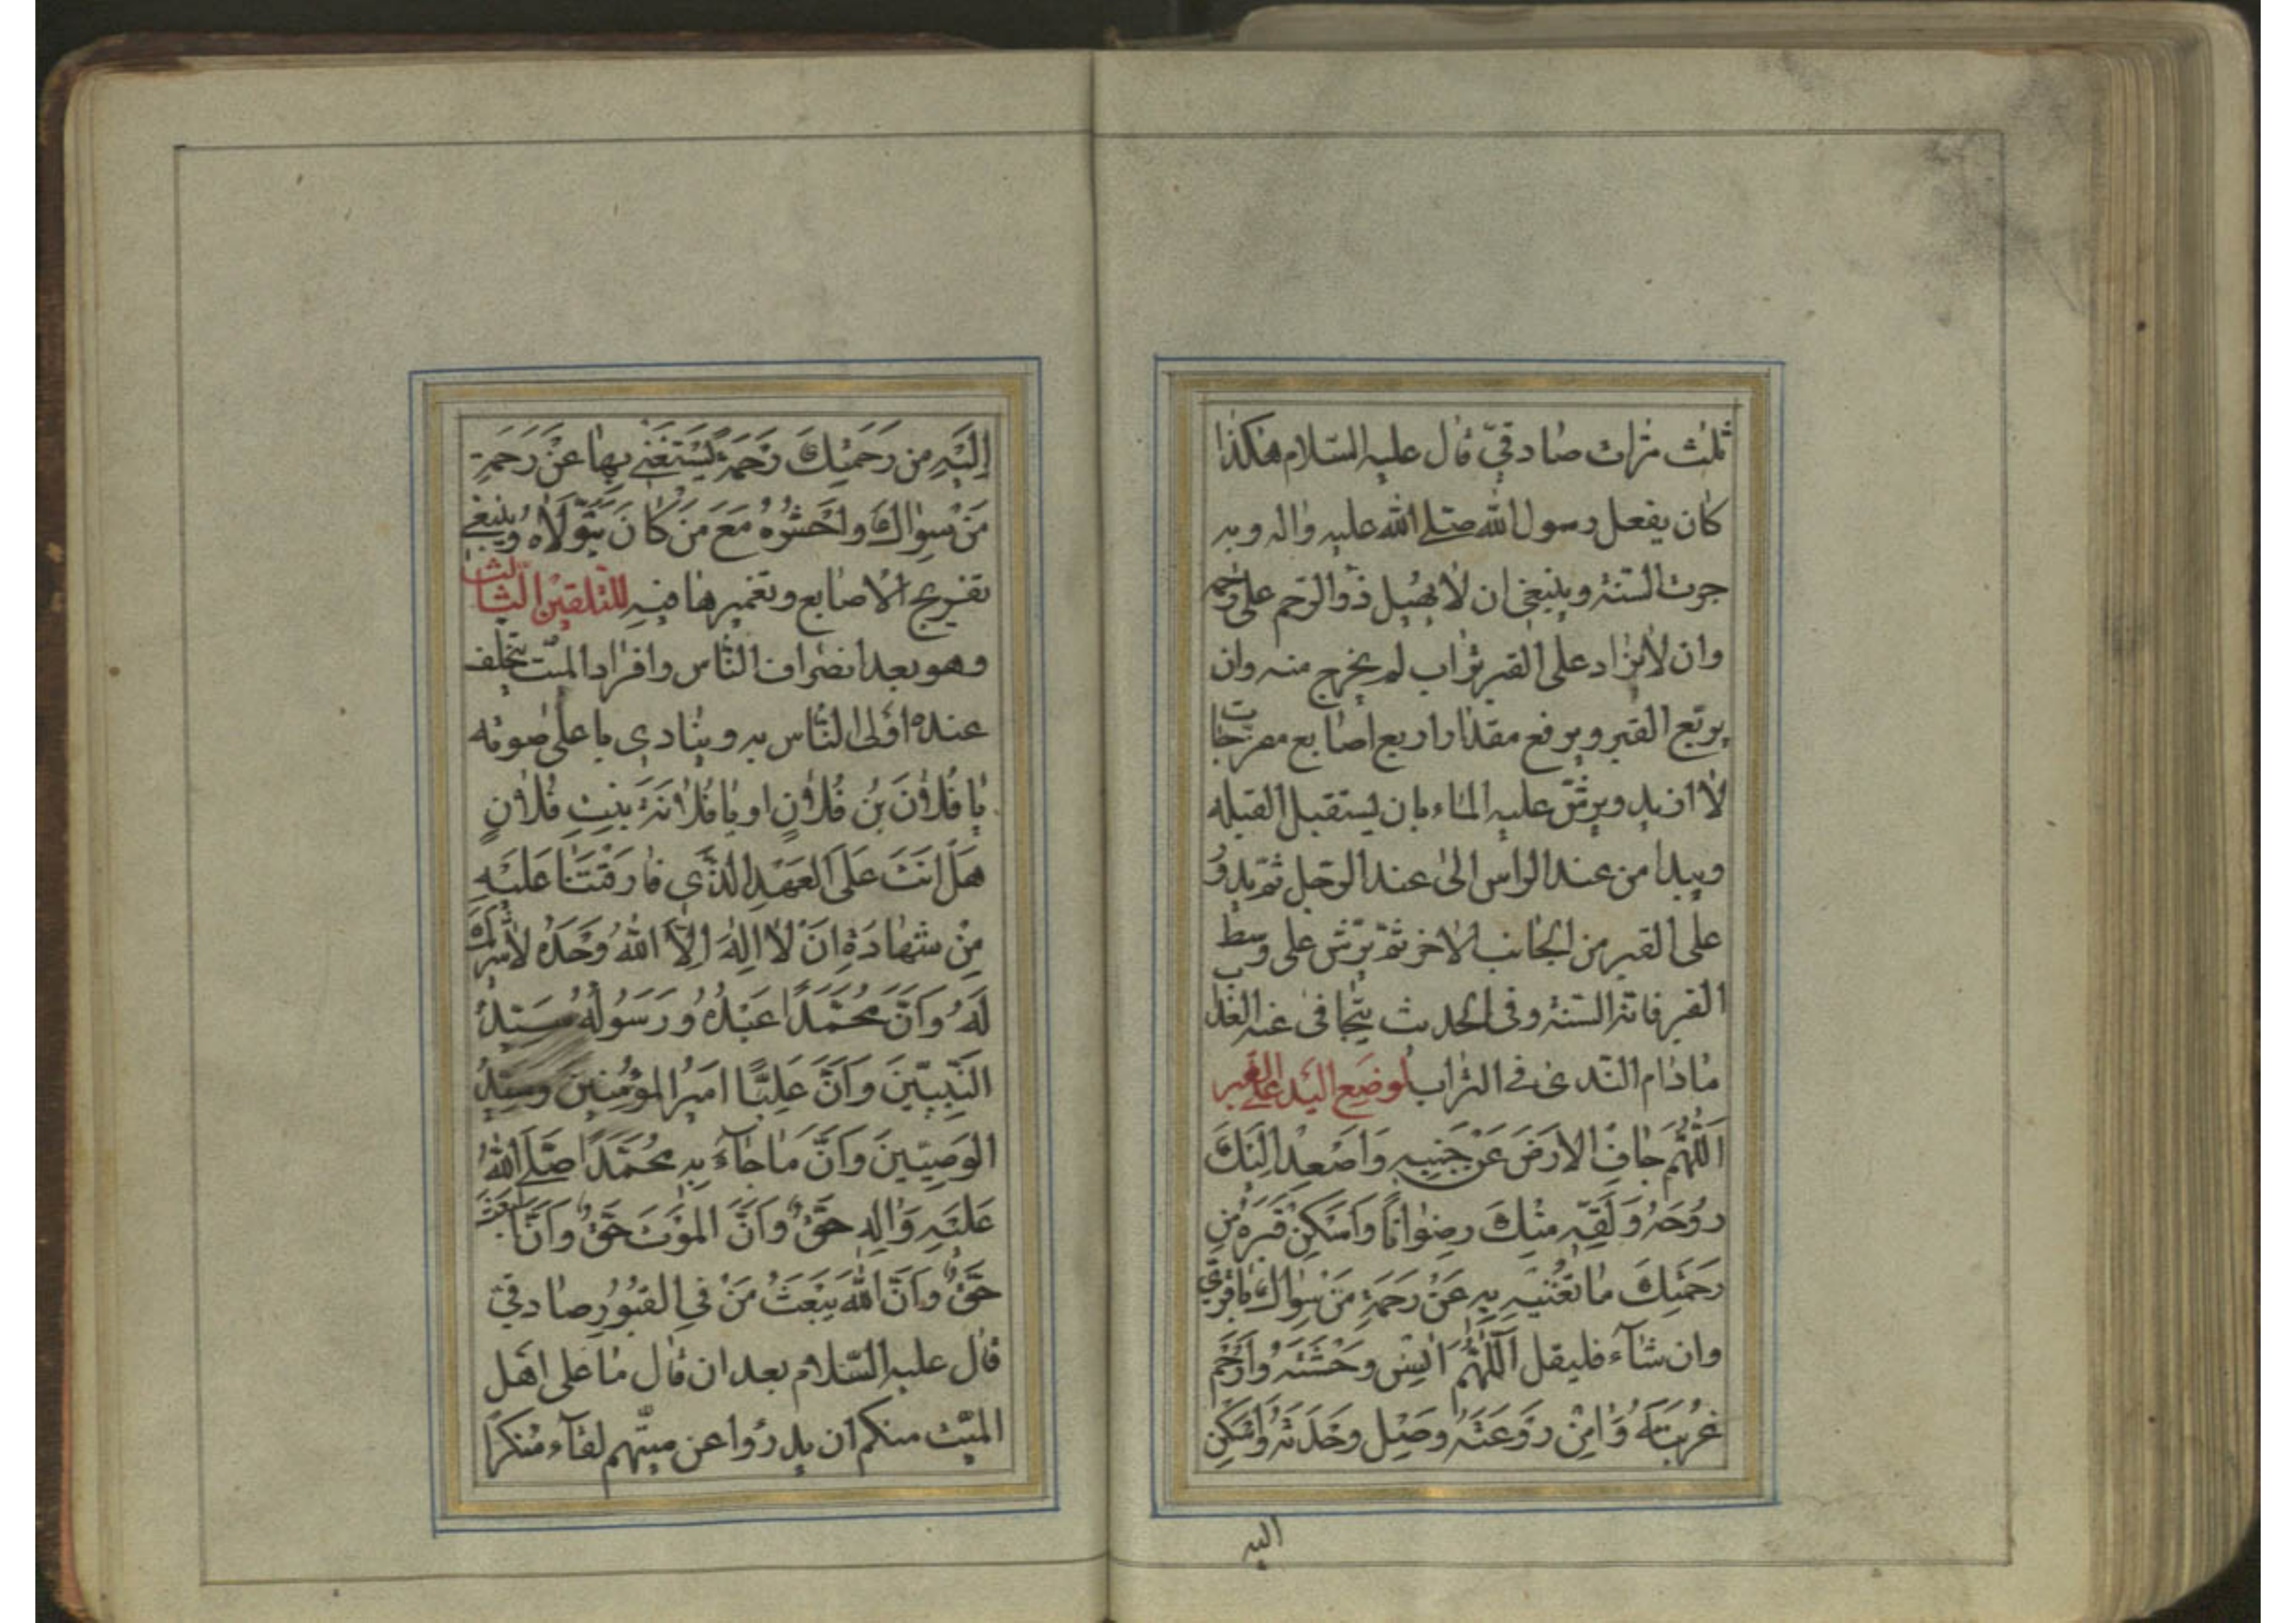 ثلث مرات صادقيّ قال عليه السّلام هكذا
كان يفعل رسول الله صلّى الله عليه واله وبه
جرت السّنة وينبغي ان لا يهيل ذو الرّحم على رحم
وان لا يزاد على القبر تراب لم يخرج منه وان
يربّع القبر ويرفع مقدار اربع اصابع مفرّجات
لا ازيد ويرشّ عليه الماء بان يستقبل القبله
ويبدا من عند الراس الى عند الرّجل ثم يدور
على القبر من الجانب الاخر ثمّ يرّش على وسط
القبر فانّه السّنة وفى الحديث يتجافى عنه العذاب
مادام النّدى في التراب لوضع اليد على القبر
اَللّهُمَّ جافِ الارَضَ عَنْ جَنبِيهِ وَاصَعِدْ اِلَيكَ
رُوُحَهُ وَلَقِّهِ مِنْكَ رِضوانًا وَاَسَكِنْ قَبَرهُ مِن
رَحَمَتِكَ ما تُغْنيهِ بِهِ عَنْ رَحَمةِ مَنْ سِواكَ باقريّ
وان شآء فليقل اَللّهُمَّ انِسْ وحَشَتَهُ وَارْحَم
غُربَتَهُ وَامِنْ رَوَعَتَهُ وَصِلْ وحَدَتَهُ وَاَسَكِنْ
اليه
اِلَيَهِ مِن رَحَمَتِكَ رَحَمةً يَسْتَغَنى بِها عَنْ رَحَمَةِ
مَنْ سِواكَ واحَشُرْهُ مَعَ مَنْ كانَ يَتَوَلّاهُ وينبغي
تفريج الاصابع وتغميرها فيه للتّلقين الثّالث
وهو بعد انصراف النّاس وافراد الميّت يتخلف
عنده اولى النّاس به وينادي باعلى صوته
يا فُلانَ بْنَ فُلانٍ او يا فُلانَةَ بِنتِ فُلانٍ
هَلَ انَتَ عَلَى العَهَدِ الَّذَي فارَقَتَنا عَلَيَهِ
مِنْ شَهادَةِ اَنَ لا اِلهَ اِلاَّ اللهُ وَحَدَهُ لا شَريكَ
لَهُ وَاَنَّ مُحَمَّدًا عَبْدُهُ وَرَسَوُلُهُ سَيّدُ
النَّبيّينَ وَاَنَّ عَلِيًّا امَيرُ المؤُمِنينَ وسيّدُ
الوَصيّينَ وَاَنَّ مَا جآءَ بِهِ مُحَمَّدًا صَلَّى اللهُ
عَلَيَهِ وَالِهِ حَقٌّ وَاَنَّ المَوَتَ حَقٌّ وَاَنَّ البَعَثَ
حَقٌّ وَاَنَّ اللهَ يَبَعَثُ مَنْ في القُبُوُرِ صادقيّ
قال عليه السّلام بعد ان قال ما على اهل
الميّت منكم ان يدرؤا عن ميّتهم لقآء منكر